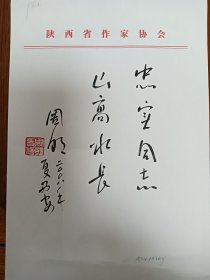 陕西省作家协会
忠实同志
山高水长
周明
二〇〇八年
夏西安